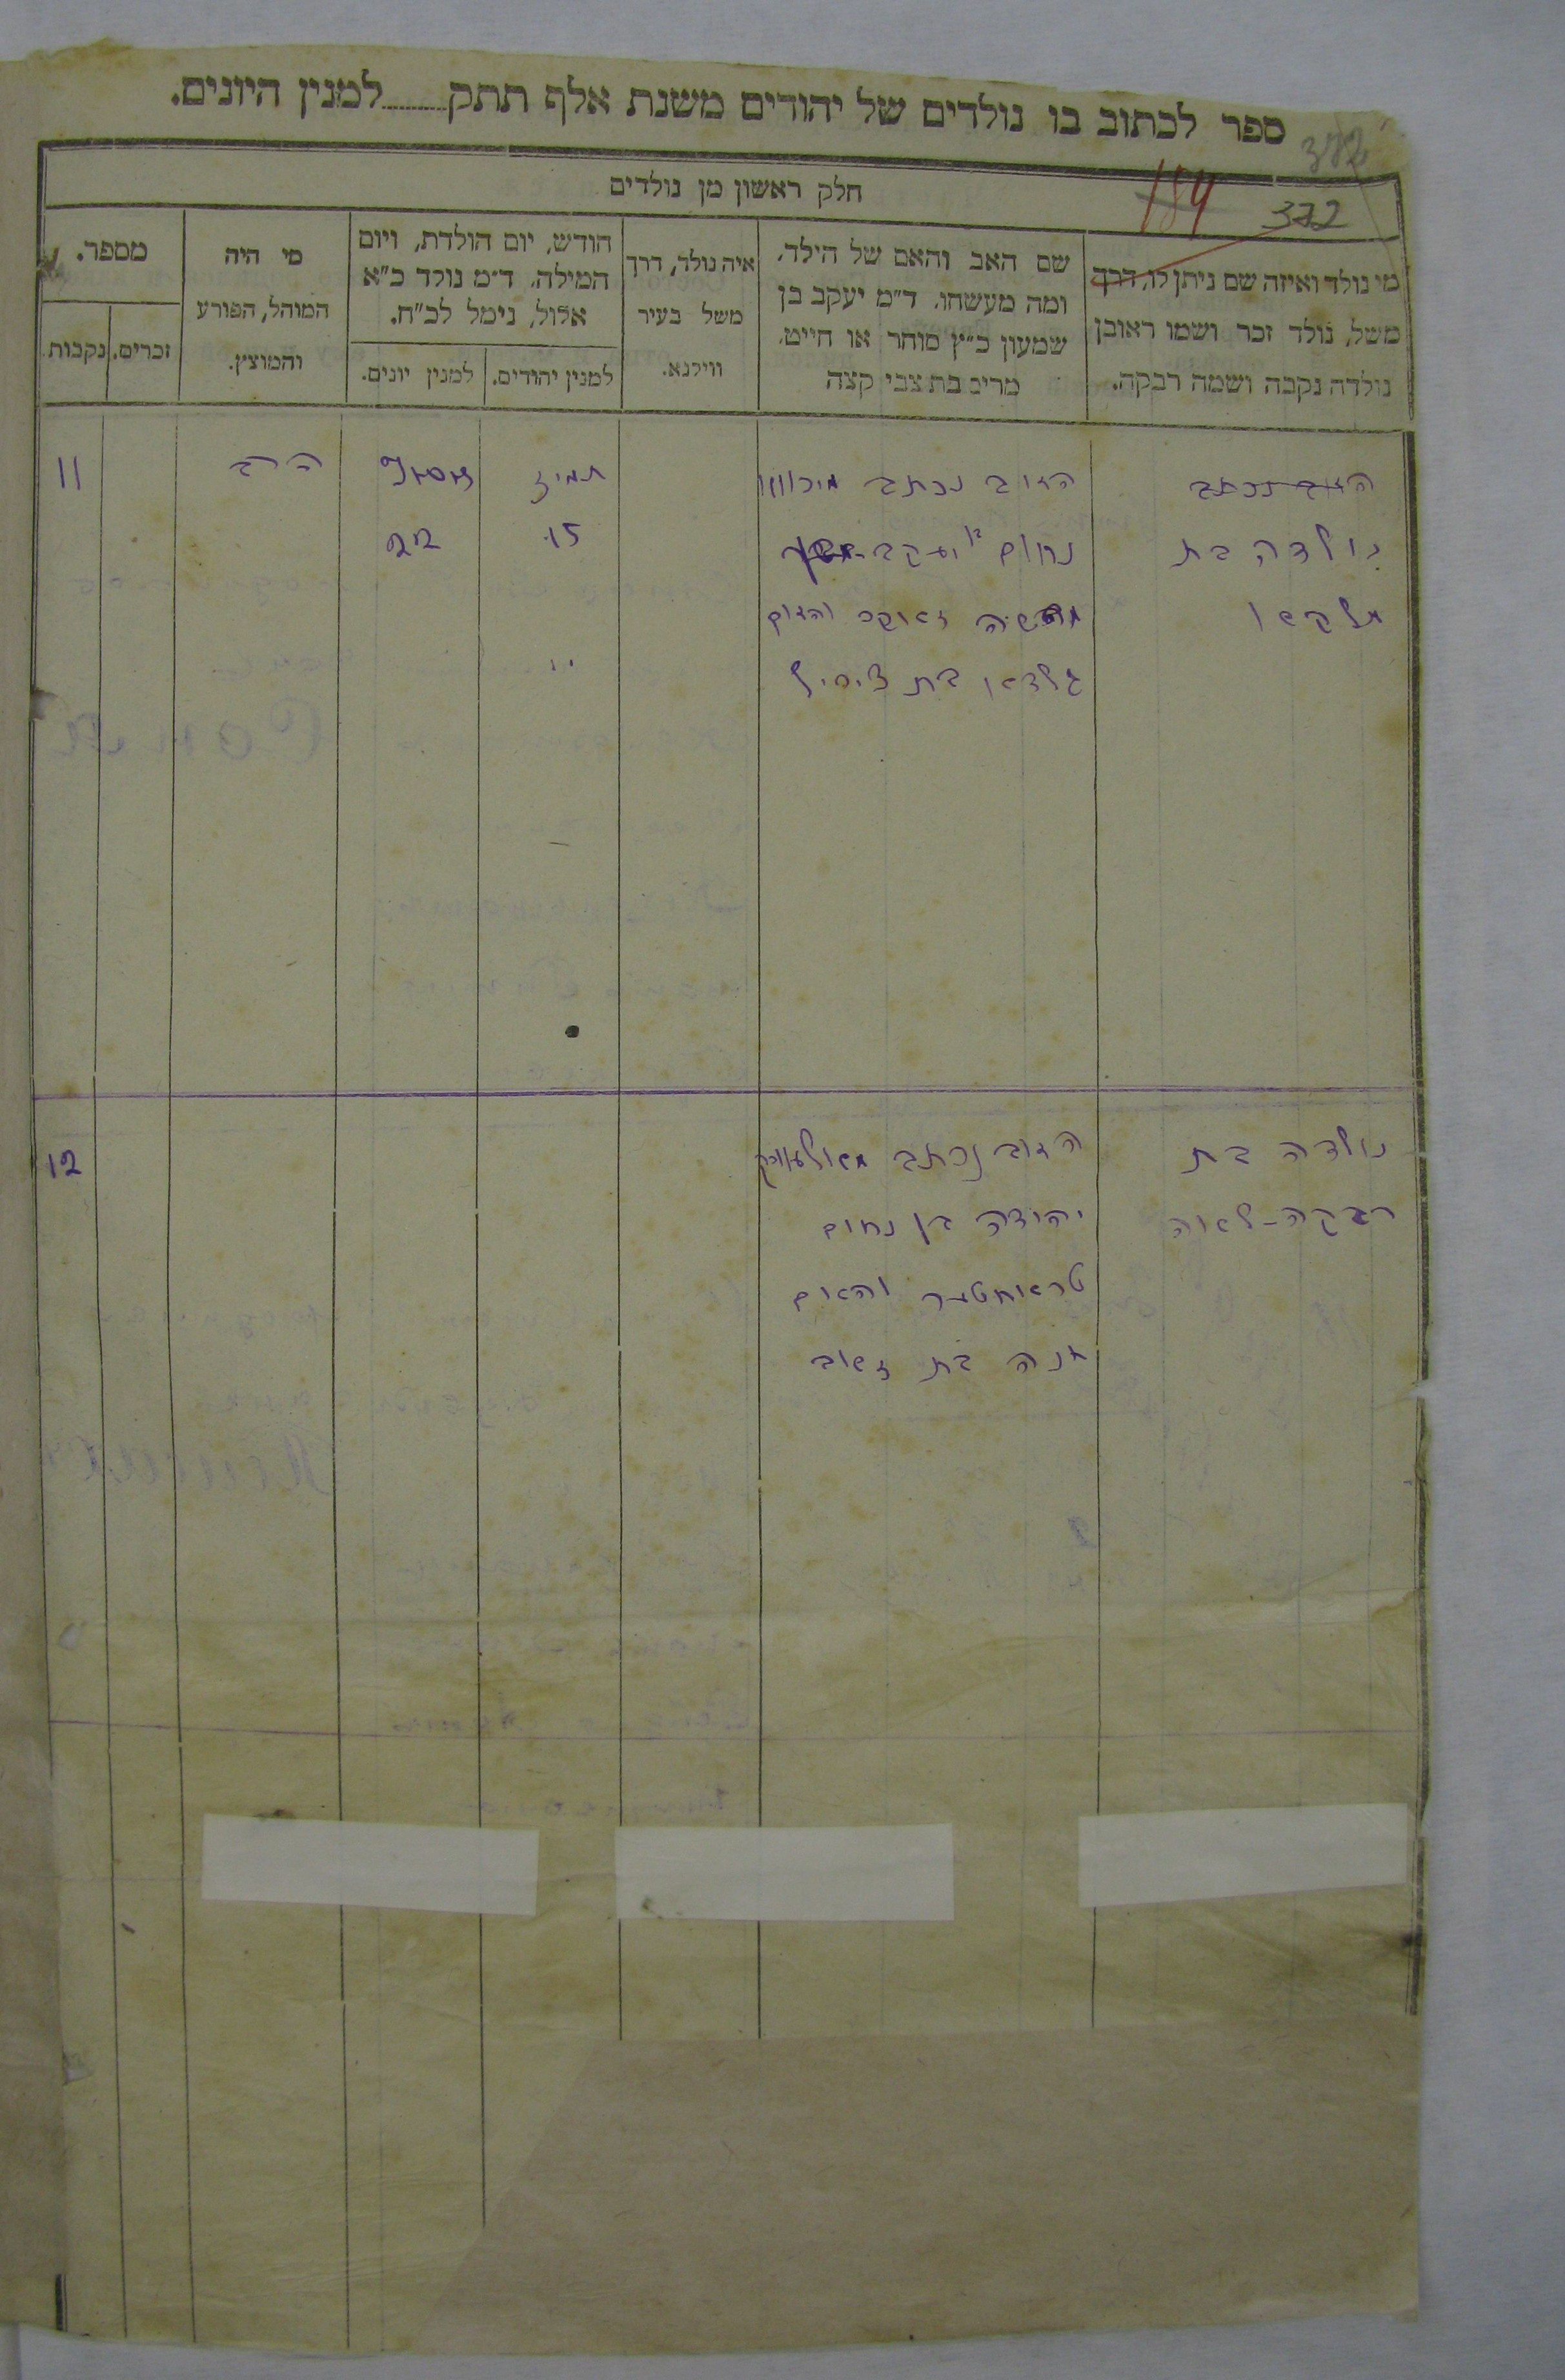 ספר לכתוב בו נולדים של יהודים משנת אלף תתק........למנין היונים.
372
חלק ראשון מן נולדים
184 372
מי נולד ואיזה שם ניתן לו, דרך
משל, נולד זכר ושמו ראובן
נולדה נקבה ושמה רבקה.
שם האב והאם של הילד,
ומה מעשהו. ד"מ יעקב בן
שמעון כ"ץ סוחר או חייט,
מרים בת צבי קצה
איה נולד, דרך
משל בעיר
ווילנא.
חודש, יום הולדת, ויום
המילה. ד"מ נולד כ"א
אלול, נימל לכ"ח.
למנין יהודים.
למנין יונים.
מי היה
המוהל, הפורע
והמוצץ.
מספר.
זכרים.
נקבות
האב נכתב
נולדה בת
האב נכתב
נחום בן יעקב
והאם
גולדא בת ציריל
תמיז
15
22
הרב
11
נולדה בת
רבקה-לאה
האב נכתב
יהודה בן נחום
טראחטער והאם
חנה בת זאב
12